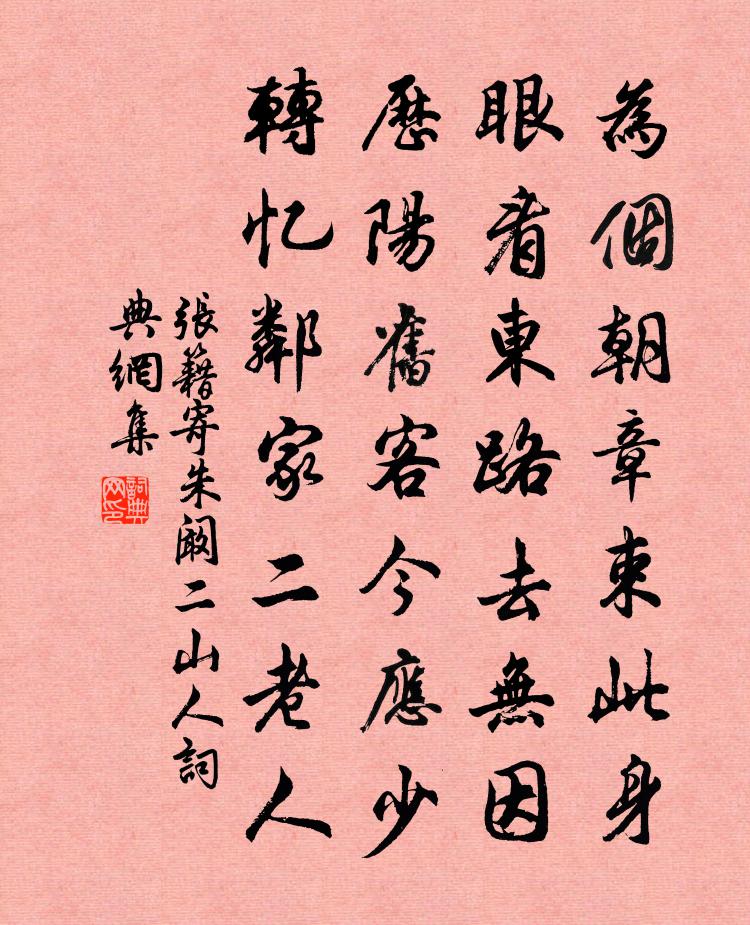 為個朝章束此身
眼看東路去無因
歷陽舊客今應少
轉忆鄰家二老人
張籍寄朱闞二山人詞
典網集
詞典
网印